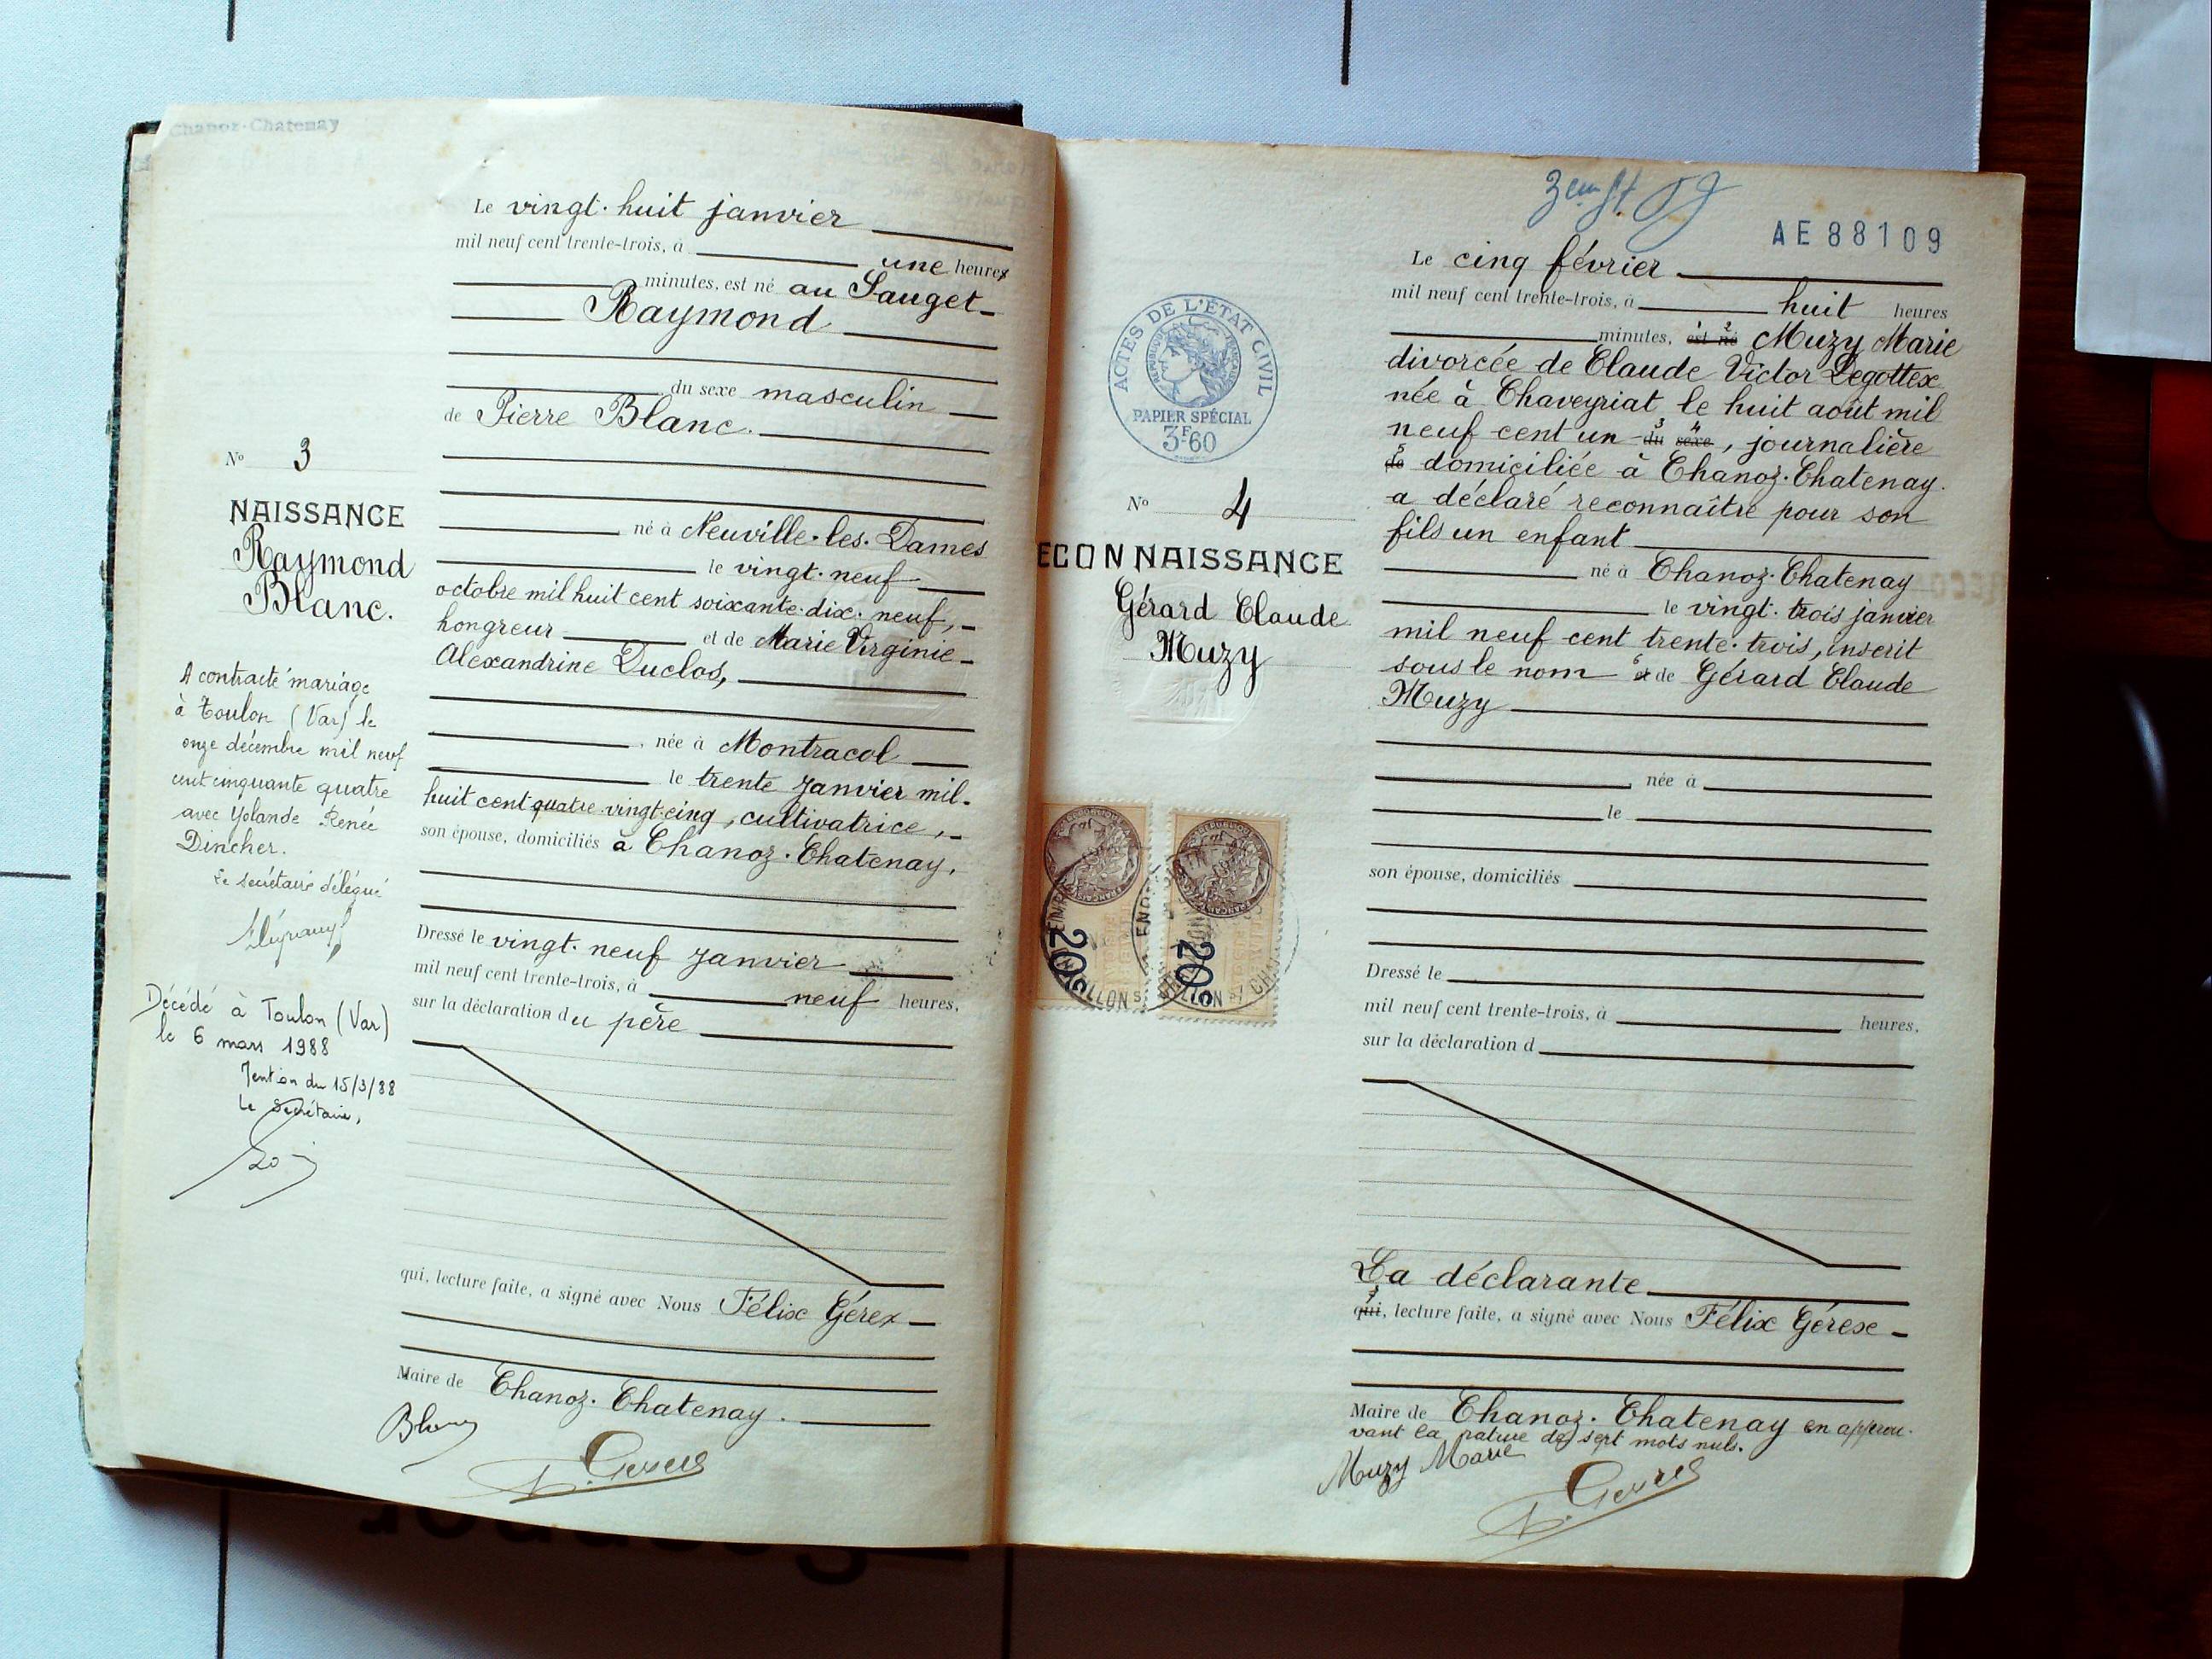 Chanoz-Chatenay
Le vingt-huit janvier
mil neuf cent trente-trois, à une heures
minutes, est né au Sauget
Raymond
du sexe masculin
de Pierre Blanc.
né à Neuville-les-Dames
le vingt-neuf
octobre mil huit cent soixante-dix-neuf,
hongreur et de Marie Virginie
Alexandrine Duclos,
, née à Montracol
le trente janvier mil
huit cent quatre vingt-cinq, cultivatrice,
son épouse, domiciliés à Chanoz-Chatenay,
Dressé le vingt-neuf janvier
mil neuf cent trente-trois, à neuf heures,
sur la déclaration du père
qui, lecture faite, a signé avec Nous Félix Gérex
Maire de Chanoz-Chatenay.
Blanc
Nº 3
NAISSANCE
Raymond
Blanc.
A contracté mariage
à Toulon (Var) le
onze décembre mil neuf
cent cinquante quatre
avec Yolande Renée
Dincher.
Le secrétaire délégué
Décédé à Toulon (Var)
le 6 mars 1988
Mention du 15/3/88
Le Secrétaire,
AE 88109
ACTES DE L'ÉTAT CIVIL
RÉPUBLIQUE FRANÇAISE
PAPIER SPÉCIAL
3F60
Nº 4
ECONNAISSANCE
Gérard Claude
Muzy
20c
20c
Le cinq février
mil neuf cent trente-trois, à huit heures
minutes, est né Muzy Marie
divorcée de Claude Victor Legottex
née à Chaveyriat le huit août mil
neuf cent un du sexe, journalière
de domiciliée à Chanoz-Chatenay.
a déclaré reconnaître pour son
fils un enfant
né à Chanoz-Chatenay
le vingt-trois janvier
mil neuf cent trente-trois, inscrit
sous le nom et de Gérard Claude
Muzy
, née à
le
son épouse, domiciliés
Dressé le
mil neuf cent trente-trois, à heures,
sur la déclaration d
La déclarante
qui, lecture faite, a signé avec Nous Félix Gérex
Maire de Chanoz-Chatenay en approu-
vant la rature de sept mots nuls.
Muzy Marie